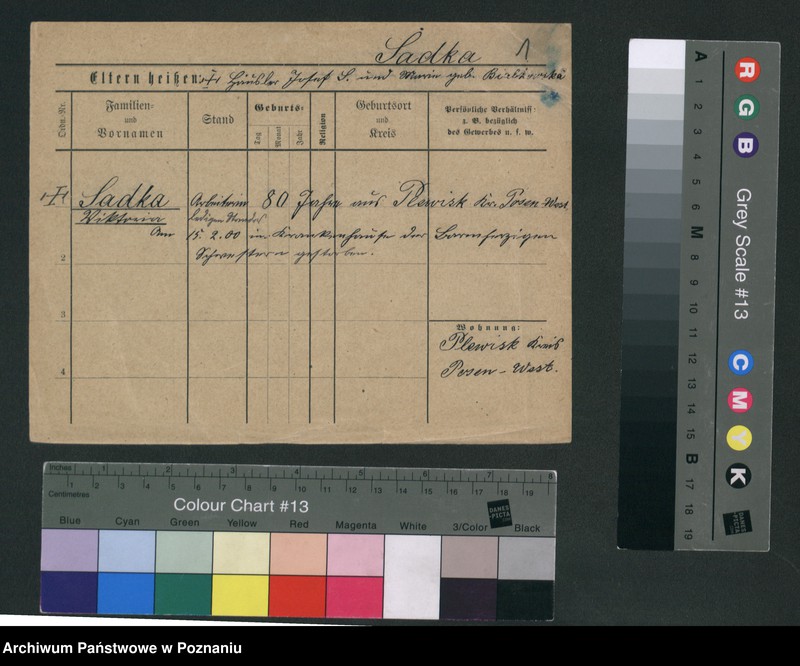 Sadka 1
Eltern heißen: Häusler Josef S. und Marie geb.
Ordg.-Nr.
Familien- und Vornamen
Stand
Geburts-
Tag
Monat
Jahr
Religion
Geburtsort und Kreis
Persönliche Verhältniss:
z. B. bezüglich
des Gewerbes u. s. w.
Sadka Arbeiterin 80 Jahre aus Plewisk Krs. Posen-West
Viktoria ledigen Standes
Am 15.2.00 im Krankenhause der Barmherzigen
Schwestern gestorben.
2
3
4
Wohnung:
Plewisk Kreis
Posen-West.
Inches 1 2 3 4 5 6 7 8
Centimetres 1 2 3 4 5 6 7 8 9 10 11 12 13 14 15 16 17 18 19
Colour Chart #13
DANES
-PICTA
.COM
Blue Cyan Green Yellow Red Magenta White 3/Color Black
R G B
Grey Scale #13
C M Y K
A 1 2 3 4 5 6 M 8 9 10 11 12 13 14 15 B 17 18 19
DANES
-PICTA
.COM
Archiwum Państwowe w Poznaniu